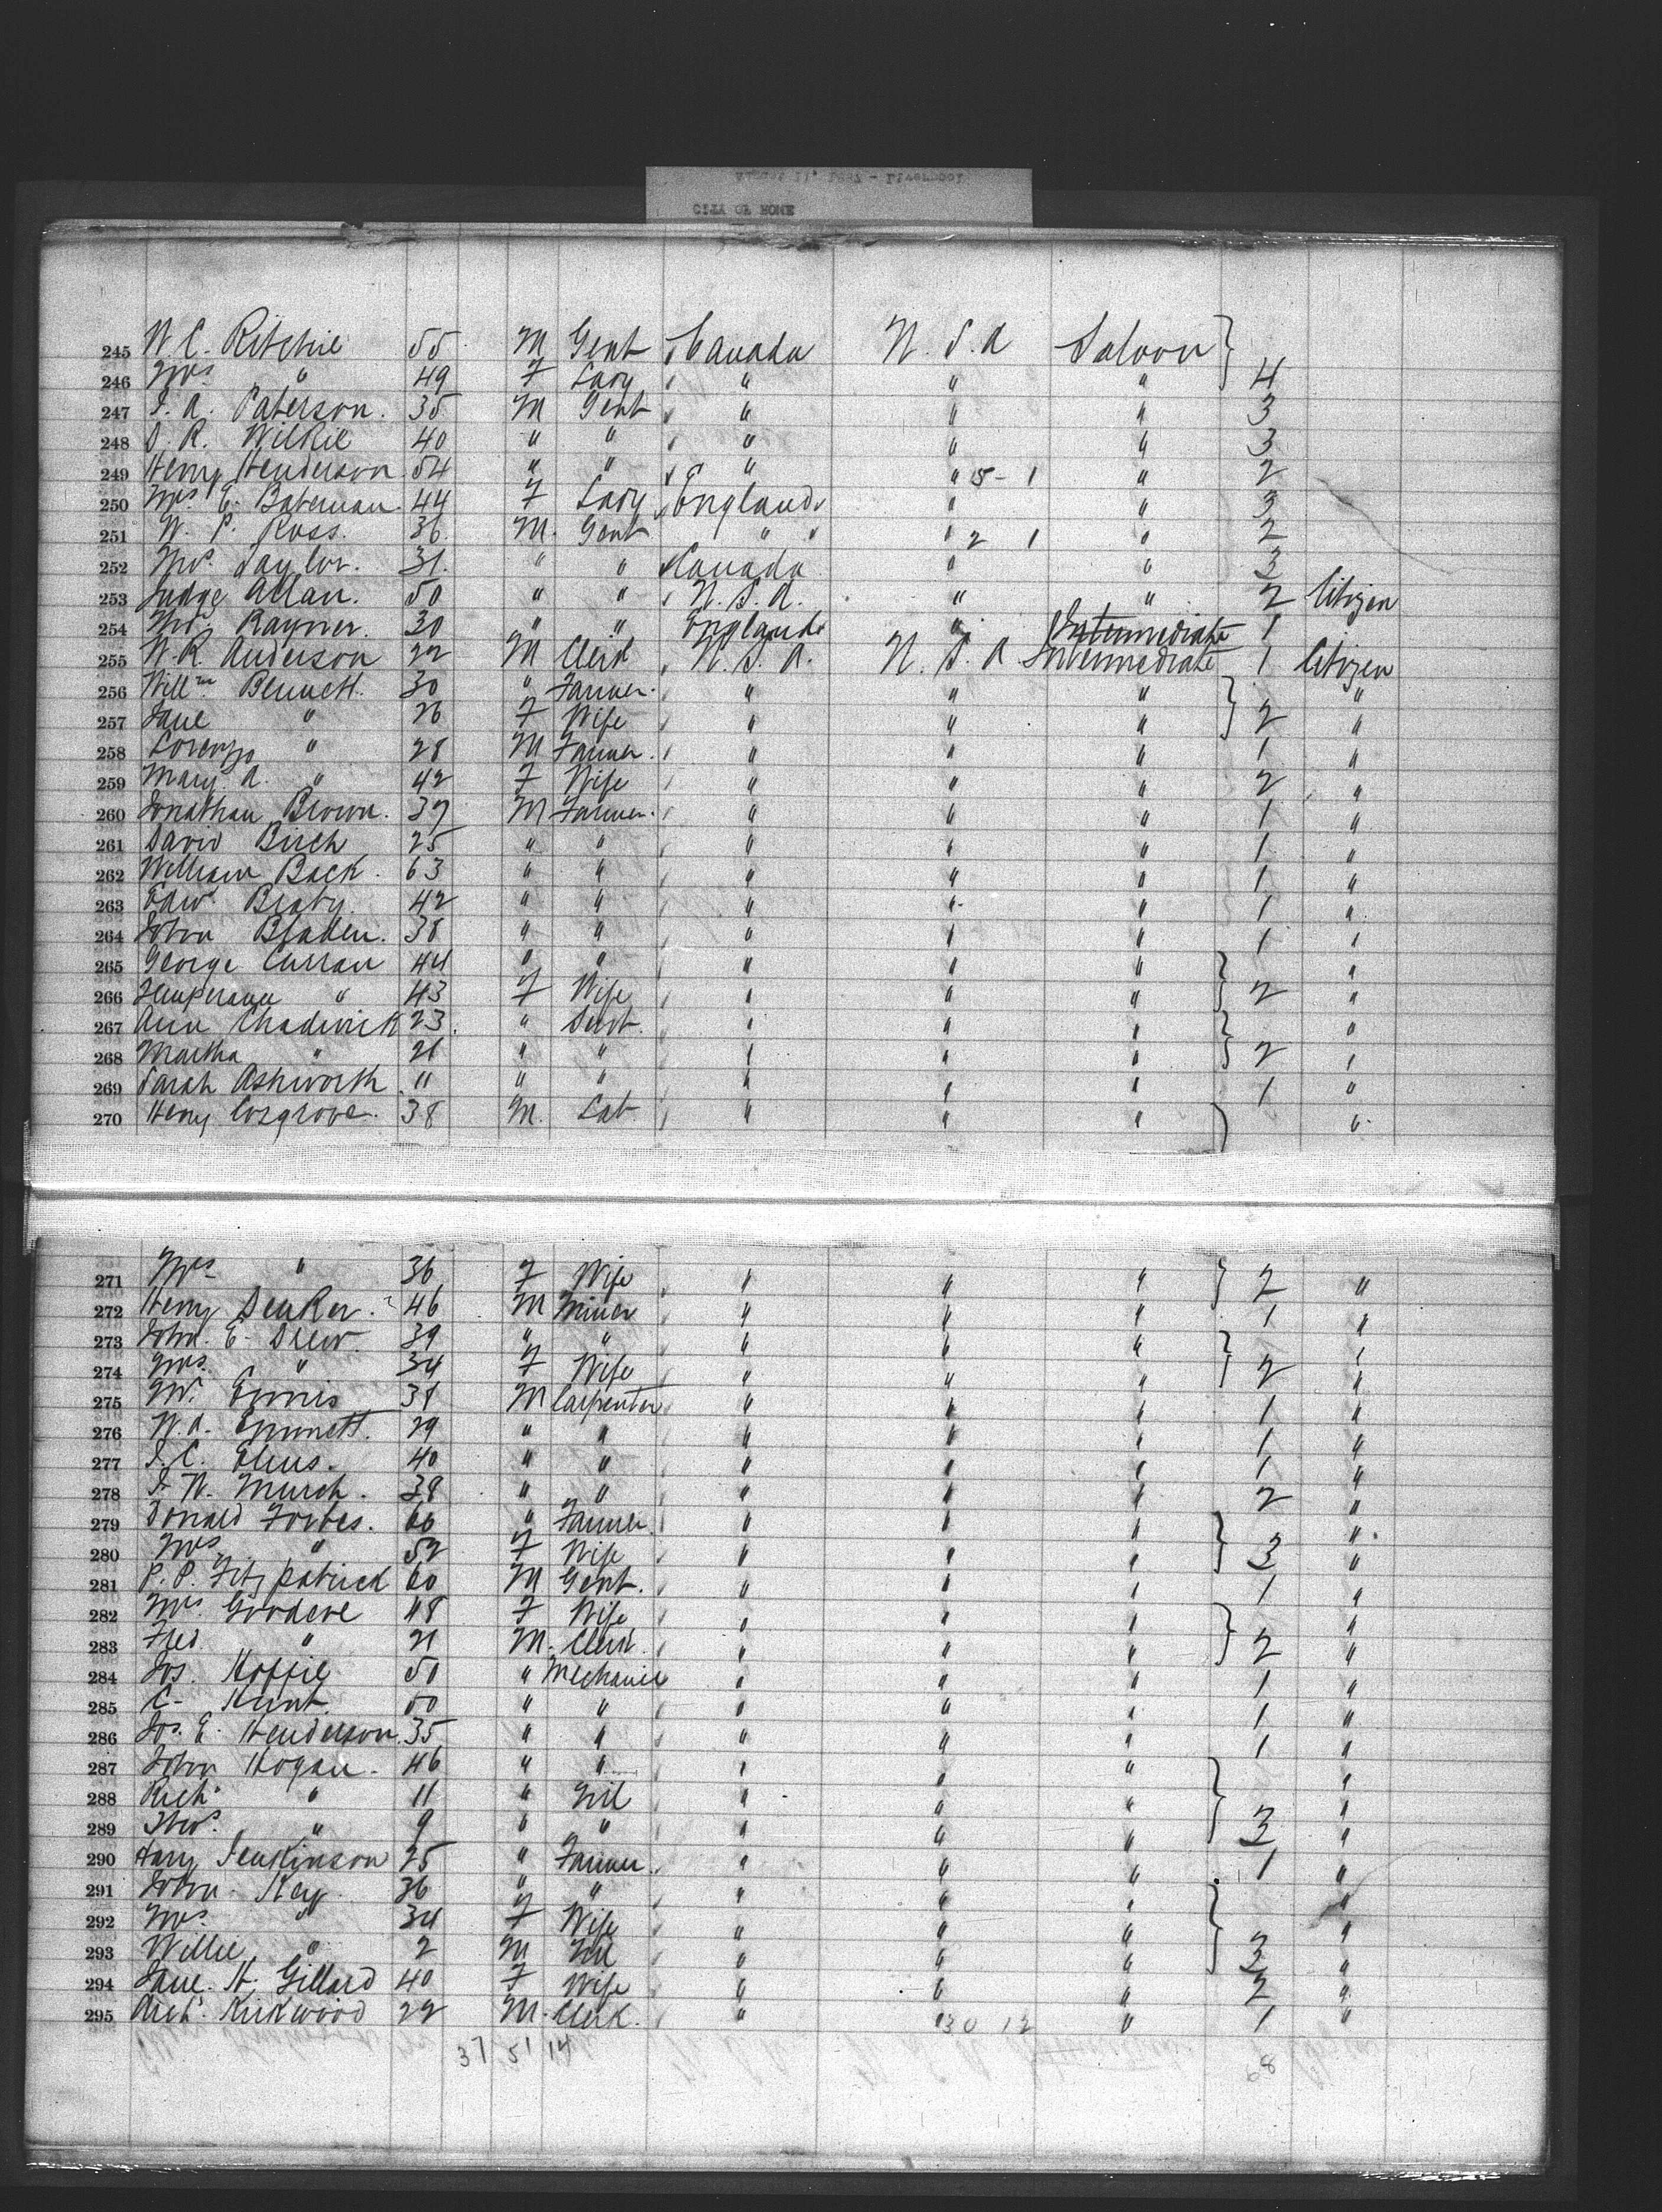 CITY OF ROME
245 W. C. Ritchie 55 M Gent Canada U.S.A Saloon
246 Mrs " 49 F Lady " " " 4
247 J. A. Paterson. 35 M Gent " " " 3
248 D. R. Wilkie 40 " " " " " 3
249 Henry Henderson 54 " " " " 5-1 " 2
250 Mrs E. Bateman. 44 F Lady England " " 3
251 W. P. Ross. 36 M. Gent " " " 2 1 " 2
252 Taylor. 31. " " Canada " " 3
253 Judge Allan. 50 " " U.S.A. " " 2 Citizen
254 Rayner. 30 " " England " Intermediate 1
255 W. R. Anderson 22 M Clerk U.S.A. U.S.A Intermediate 1 Citizen
256 Willm Bennett. 30 " Farmer. " " " "
257 Jane " 26 F Wife " " " 2 "
258 Lorenzo " 28 M Farmer. " " " 1 "
259 Mary A. " 42 F Wife " " " 2 "
260 Jonathan Brown. 37 M Farmer. " " " 1 "
261 David Birch 25 " " " " " 1 "
262 William Back. 63 " " " " " 1 "
263 Edwd 42 " " " " " 1 "
264 John Bladen. 38 " " " " " 1 "
265 George Curran 44 " " " " " "
266 " 43 F Wife " " " 2 "
267 Ann Chadwick 23. " Servt. " " " "
268 Martha " 21 " " " " " 2 "
269 Sarah Ashworth 11 " " " " " 1 "
270 Henry Cosgrove. 38 M. Lab " " " "
271 Mrs " 36 F Wife " " " 2 "
272 Henry Denker. 46 M Miner " " " 1 "
273 John E. Drew. 39 " " " " " "
274 Mrs. " 34 F Wife " " " 2 "
275 Ennis 38 M Carpenter " " " 1 "
276 W. A. Emmett. 29 " " " " " 1 "
277 J. C. 40 " " " " " 1 "
278 J. W. Murch. 38 " " " " " 2 "
279 Donald Forbes. 60 " Farmer. " " " "
280 Mrs " 52 F Wife " " " 3 "
281 P. P. Fitzpatrick 60 M Gent. " " " 1 "
282 Mrs. Goodeve 48 F Wife " " " "
283 Fred " 21 M. Clerk. " " " 2 "
284 Jos. 50 " Mechanic " " " 1 "
285 C. Hunt. 50 " " " " " 1 "
286 Jos. E. Henderson. 35 " " " " " 1 "
287 John Hogan. 46 " " " " " "
288 Richd " 11 " Nil " " " "
289 Thos. " 9 " " " " " 3 "
290 Harry Jenkinson 25 " Farmer. " " " 1 "
291 John Key 36 " " " " " "
292 Mrs. " 34 F Wife " " " "
293 Willie " 2 M Nil " " " 3 "
294 Jane. H. Gillard 40 F Wife " " " 2 "
295 Archd Kirkwood 22 M. Clerk. " " 30 12 " 1 "
37 51 14 68